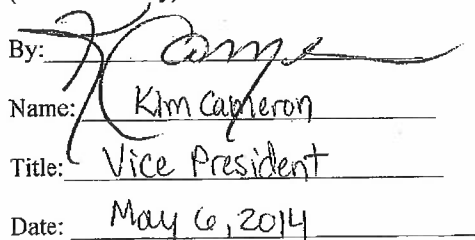 By:
Name: Kim Cameron
Title: Vice President
Date: May 6, 2014